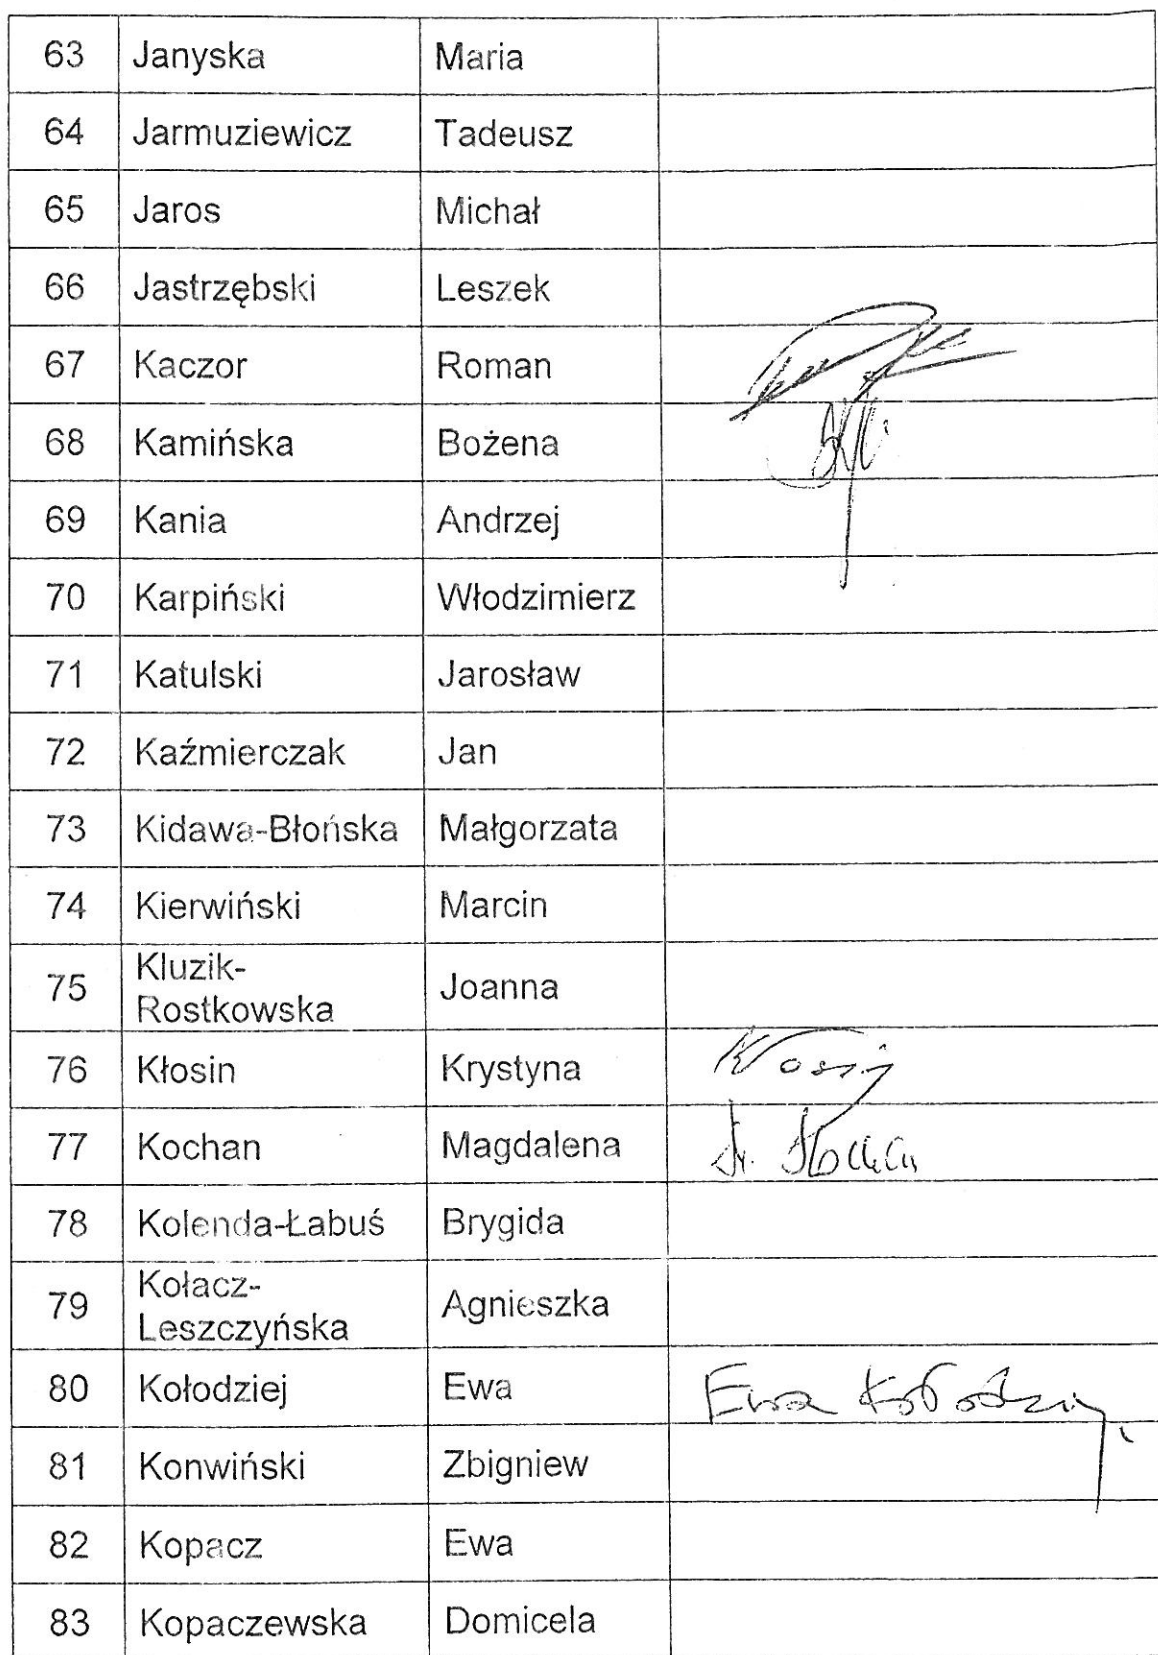 63 Janyska Maria
64 Jarmuziewicz Tadeusz
65 Jaros Michał
66 Jastrzębski Leszek
67 Kaczor Roman
68 Kamińska Bożena
69 Kania Andrzej
70 Karpiński Włodzimierz
71 Katulski Jarosław
72 Kaźmierczak Jan
73 Kidawa-Błońska Małgorzata
74 Kierwiński Marcin
75 Kluzik-
Rostkowska Joanna
76 Kłosin Krystyna Kłosin
77 Kochan Magdalena Kochan
78 Kolenda-Łabuś Brygida
79 Kołacz-
Leszczyńska Agnieszka
80 Kołodziej Ewa Ewa Kołodziej
81 Konwiński Zbigniew
82 Kopacz Ewa
83 Kopaczewska Domicela